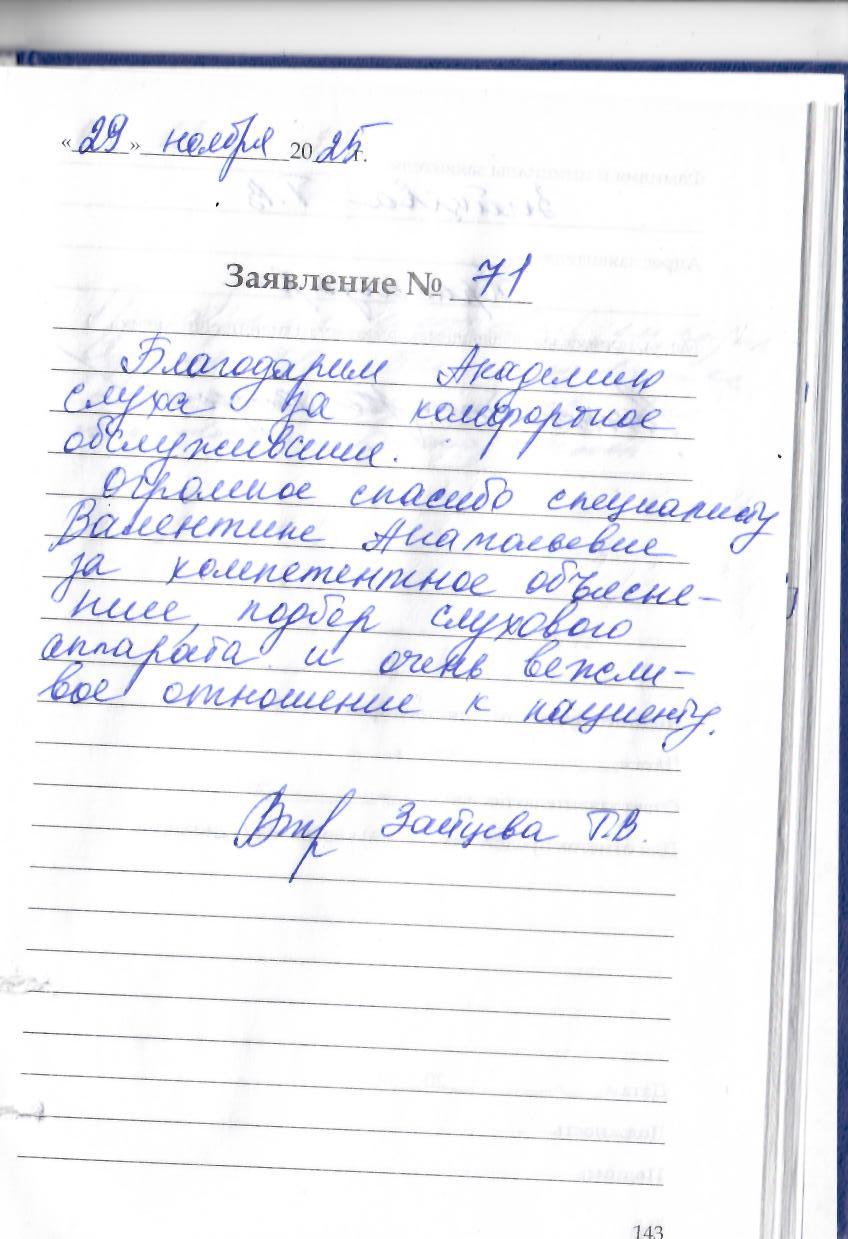 «29» ноября 2025 г.
Заявление № 71
Благодарим Академию
слуха за комфортное
обслуживание.
Огромное спасибо специалисту
Валентине Анатольевне
за компетентное объясне-
ние, подбор слухового
аппарата и очень вежли-
вое отношение к пациенту.
Зайцева Т.В.
143